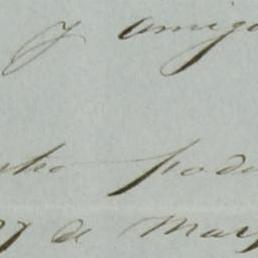 y amigo
cho pode
27 de Mar